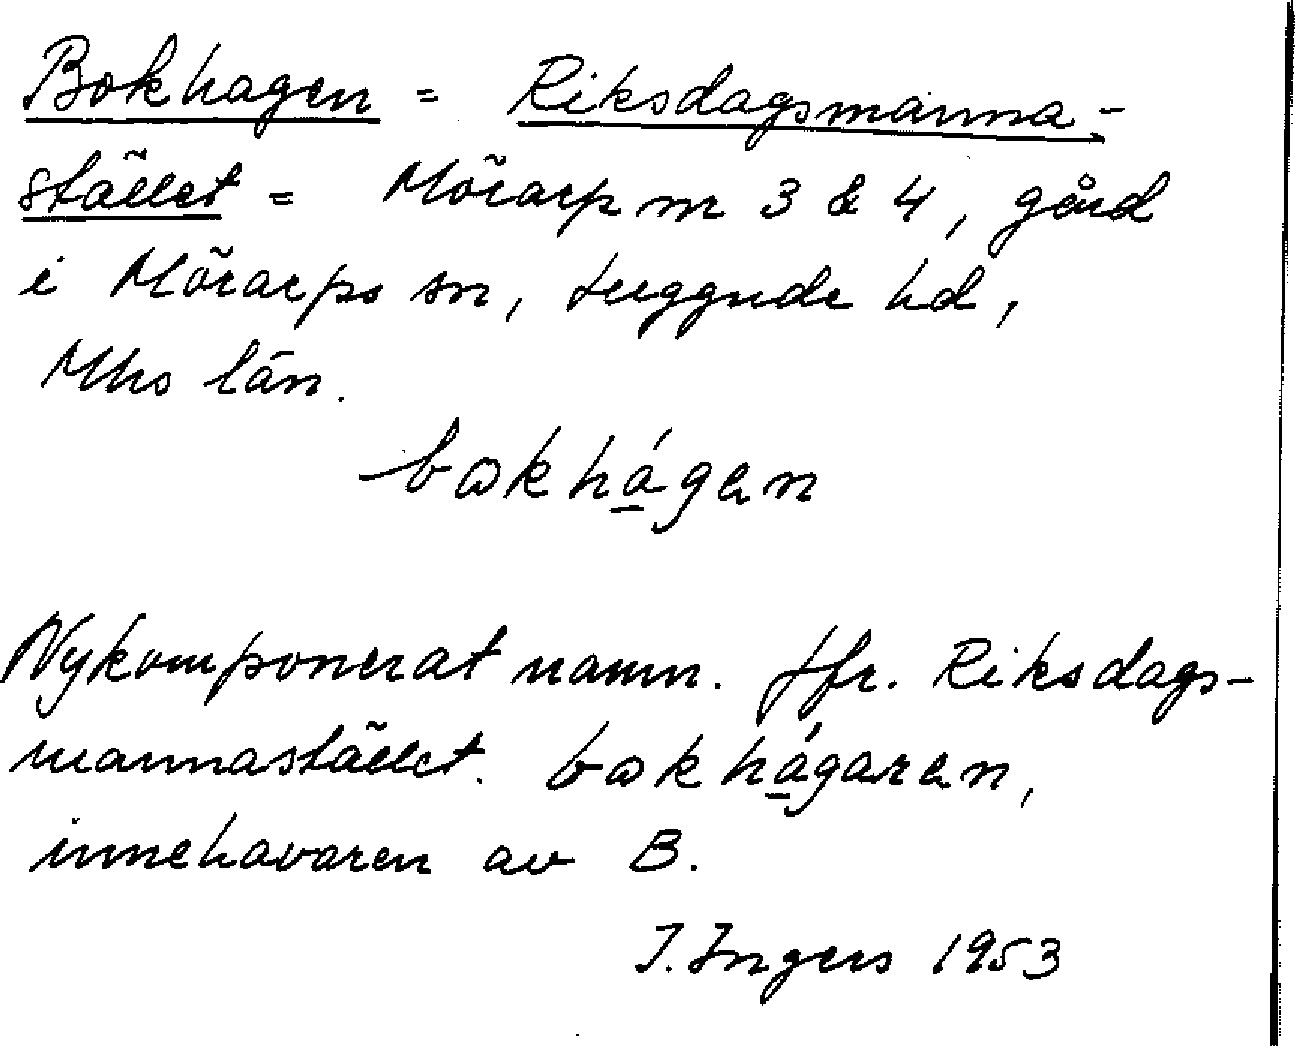 Bokhagen = Riksdagsmanna-
stället = Mörarp nr 3 & 4, gård
i Mörarps sn, Luggude hd,
Mhs län.
bɷkhá̱gan
Nykomponerat namn. Jfr. Riksdags-
mannastället. bɷkhá̱garan,
innehavaren av B.
I. Ingers 1953